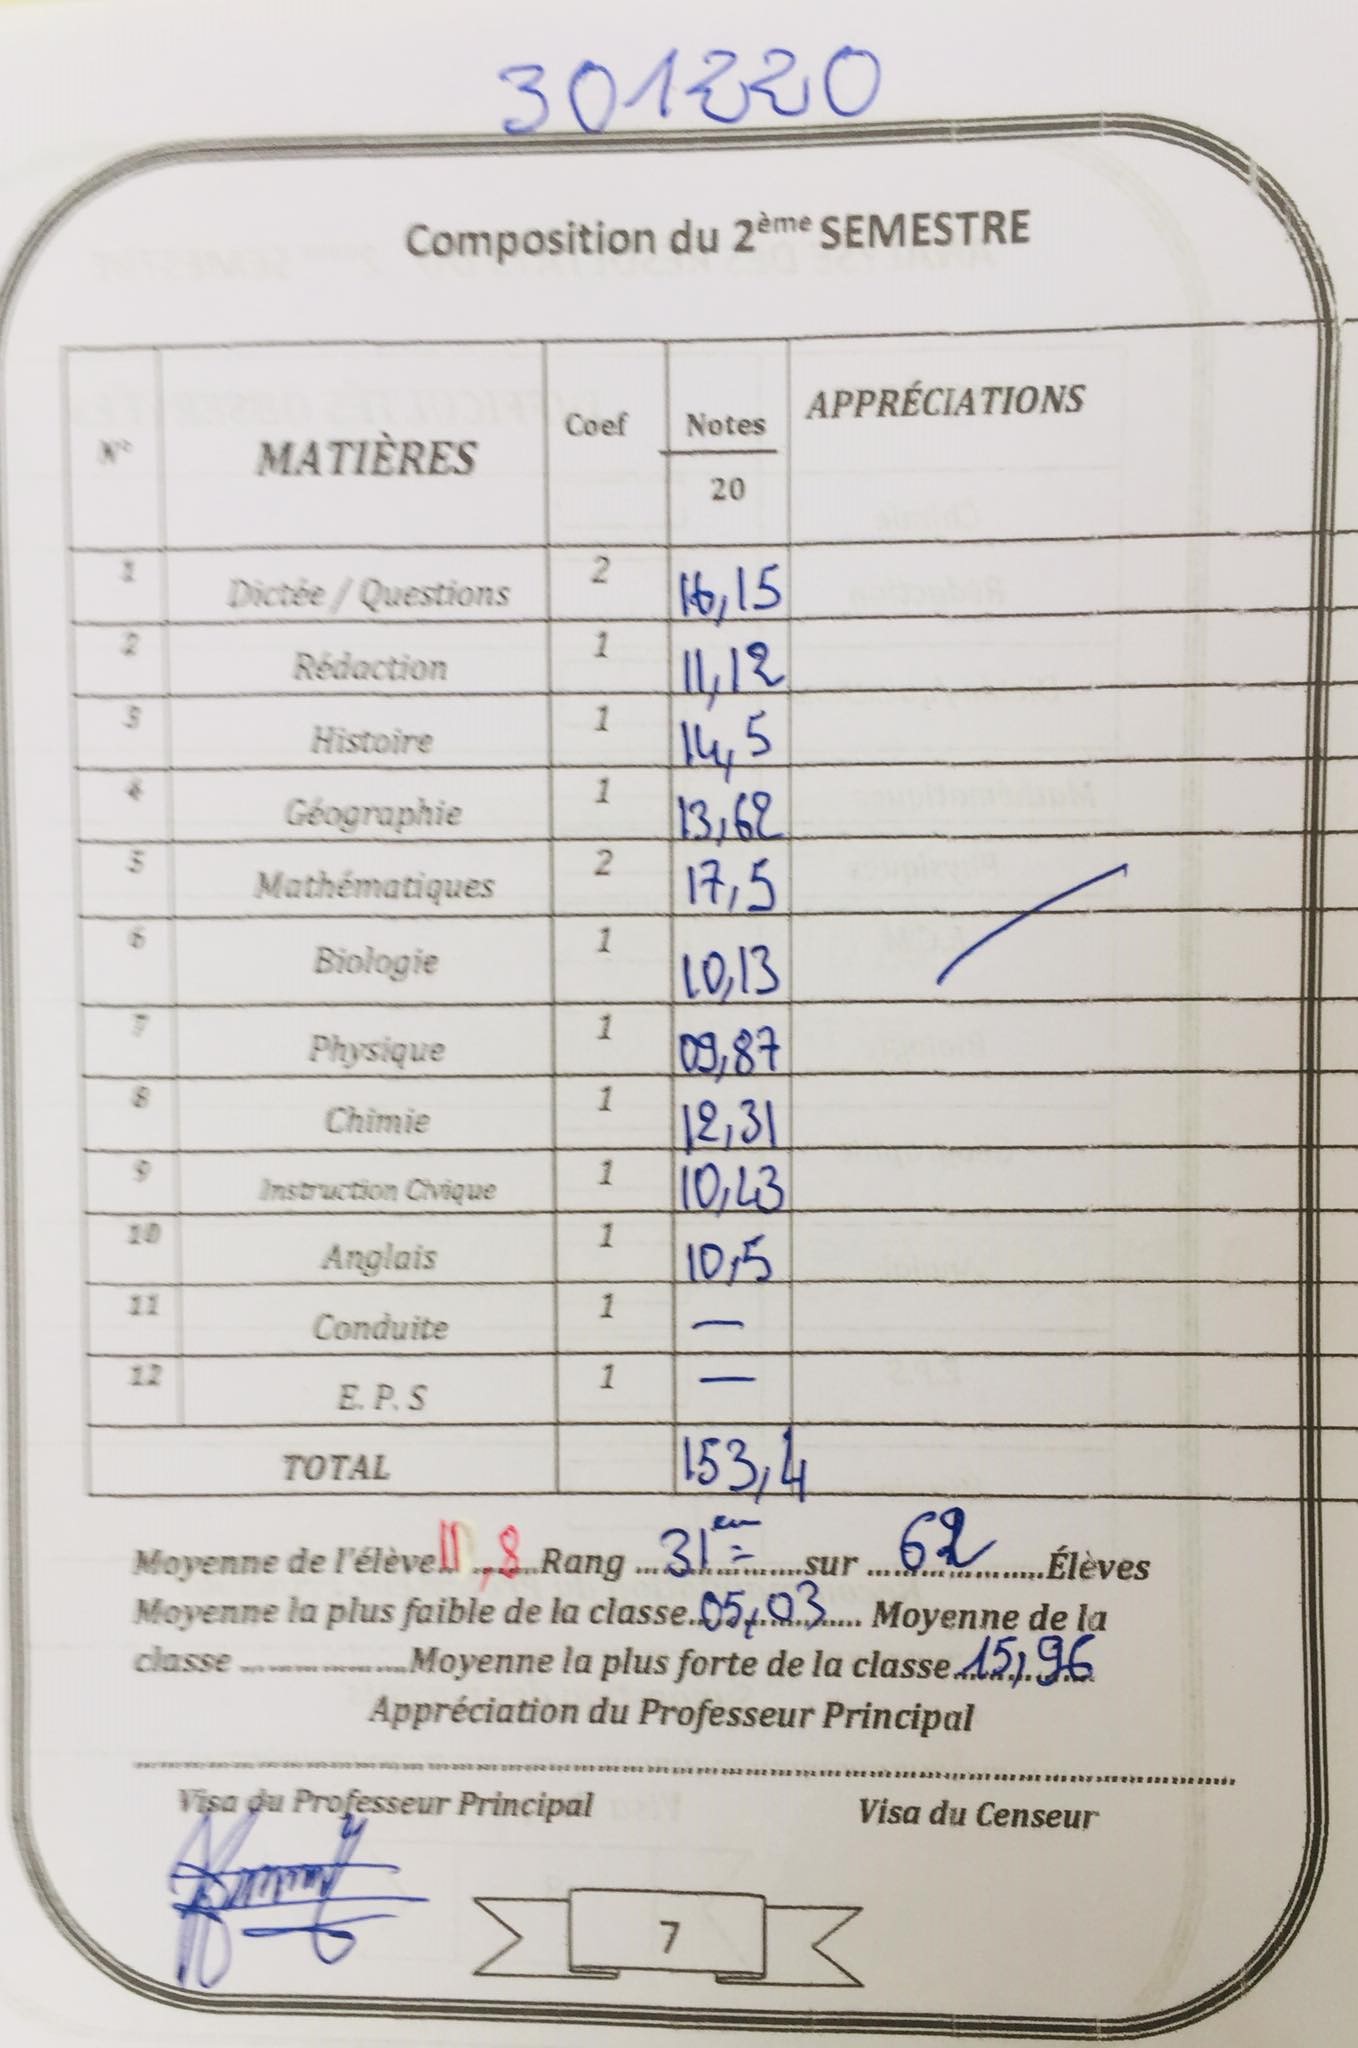 301220
Composition du 2ème SEMESTRE
N° MATIÈRES Coef Notes 20 APPRÉCIATIONS
1 Dictée / Questions 2 16,15
2 Rédaction 1 11,12
3 Histoire 1 14,5
4 Géographie 1 13,62
5 Mathématiques 2 17,5
6 Biologie 1 10,13
7 Physique 1 09,87
8 Chimie 1 12,31
9 Instruction Civique 1 10,43
10 Anglais 1 10,5
11 Conduite 1 —
12 E. P. S 1 —
TOTAL 153,4
Moyenne de l'élève 11,8 Rang 31em sur 62 Élèves
Moyenne la plus faible de la classe 05,03 Moyenne de la
classe Moyenne la plus forte de la classe 15,96
Appréciation du Professeur Principal
Visa du Professeur Principal Visa du Censeur
7